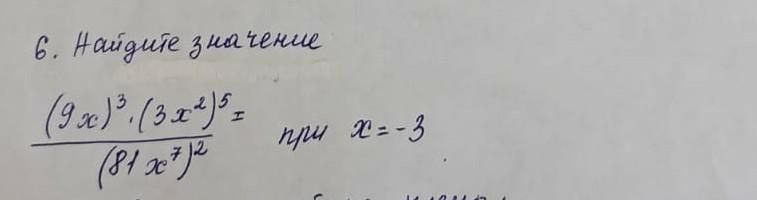 6. Найдите значение
(9x)³·(3x²)⁵ =
(81x⁷)²
при x = -3